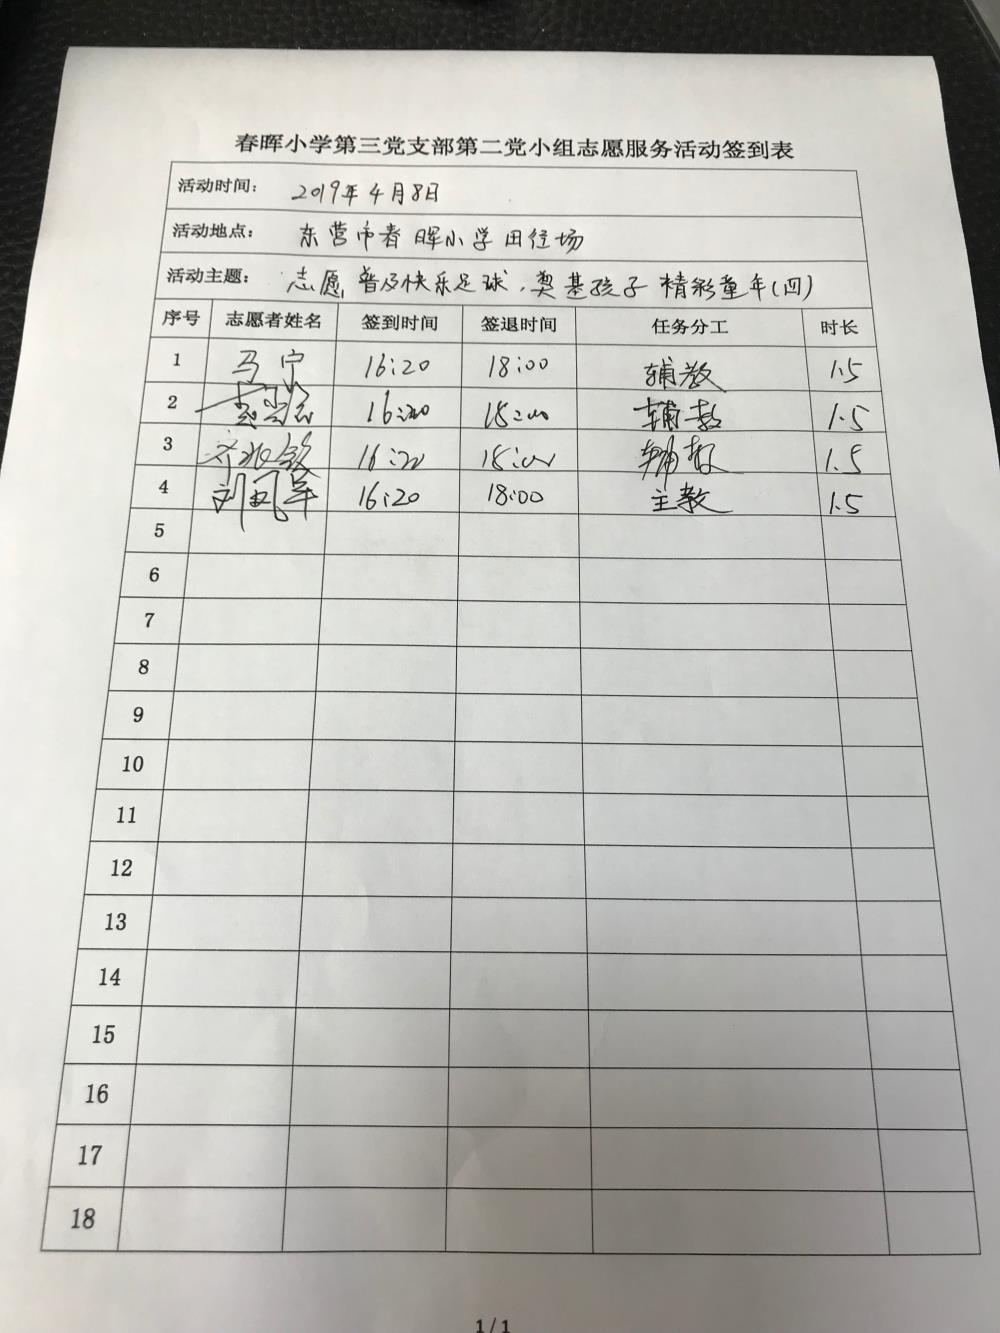 春晖小学第三党支部第二党小组志愿服务活动签到表
活动时间： 2019年4月8日
活动地点： 东营市春晖小学田径场
活动主题： 志愿普及快乐足球，奠基孩子精彩童年(四)
序号 志愿者姓名 签到时间 签退时间 任务分工 时长
1 马宁 16:20 18:00 辅教 1.5
2 16:20 18:00 辅教 1.5
3 16:20 18:00 辅教 1.5
4 刘凤军 16:20 18:00 主教 1.5
5
6
7
8
9
10
11
12
13
14
15
16
17
18
1 / 1